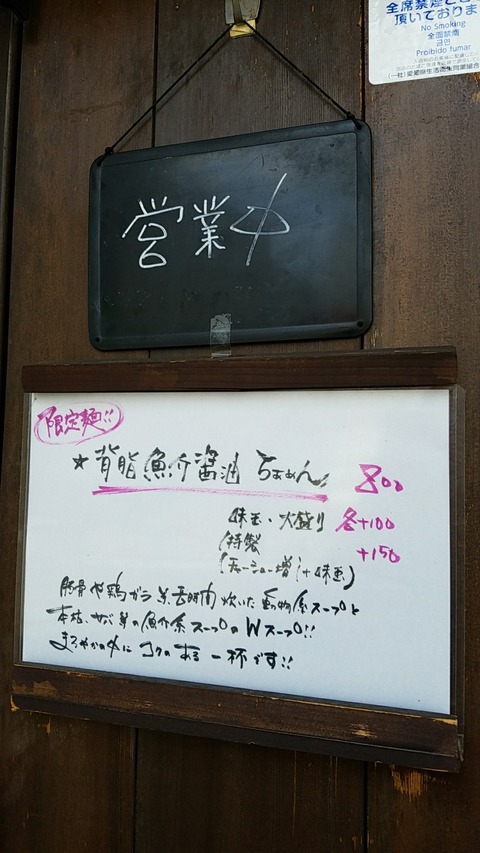 全席禁煙と
頂いておりま
No Smoking
全面禁煙
금연
Proibido fumar
営業中
限定麺!!
★背脂魚介醤油らぁめん 800
味玉・大盛り 各+100
特製 +150
(チャーシュー増し+味玉)
豚骨や鶏ガラ等長時間炊いた動物系スープと
本枯、サバ等の魚介系スープのWスープ!!
まろやかの中にコクのある一杯です!!